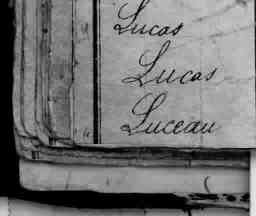 Lucas
Lucas
Luceau